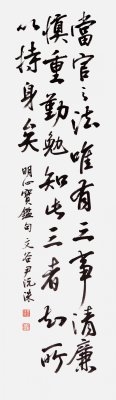 當官之法唯有三事清廉
慎重勤勉知此三者知所
以持身矣
明心寶鑑句 文谷 尹沅洙